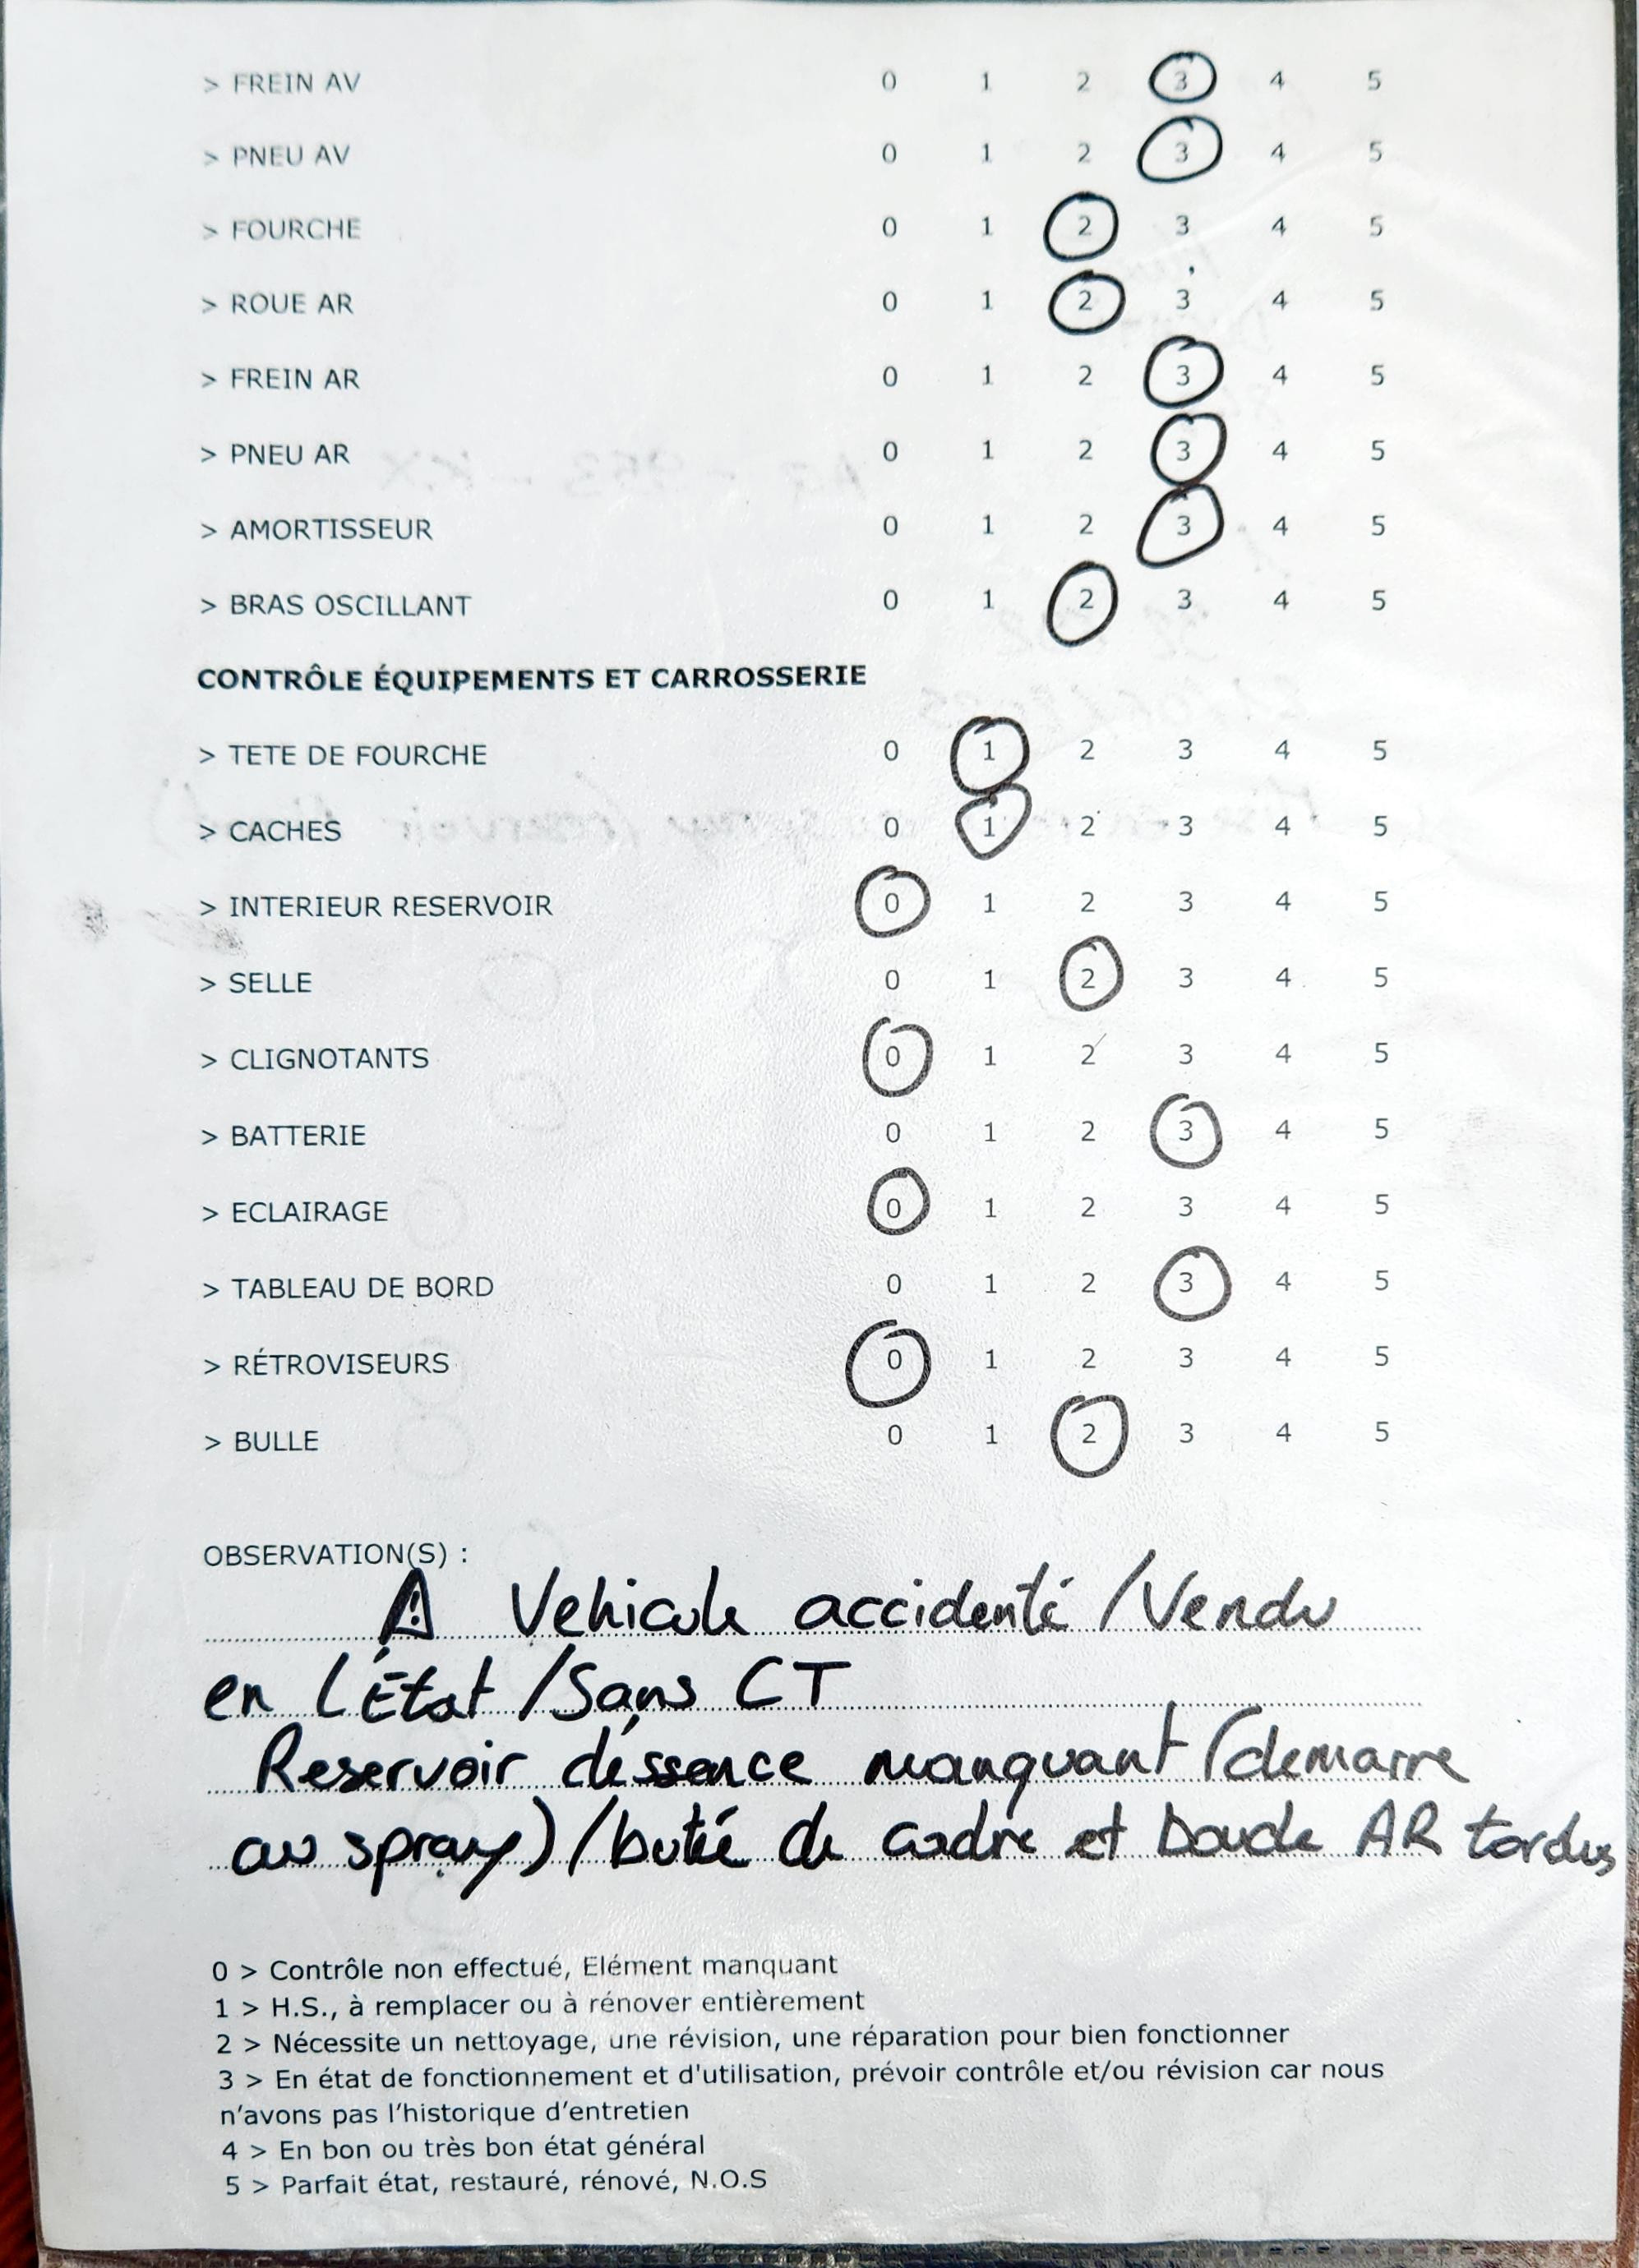 > FREIN AV 0 1 2 3 4 5
> PNEU AV 0 1 2 3 4 5
> FOURCHE 0 1 2 3 4 5
> ROUE AR 0 1 2 3 4 5
> FREIN AR 0 1 2 3 4 5
> PNEU AR 0 1 2 3 4 5
> AMORTISSEUR 0 1 2 3 4 5
> BRAS OSCILLANT 0 1 2 3 4 5
CONTRÔLE ÉQUIPEMENTS ET CARROSSERIE
> TETE DE FOURCHE 0 1 2 3 4 5
> CACHES 0 1 2 3 4 5
> INTERIEUR RESERVOIR 0 1 2 3 4 5
> SELLE 0 1 2 3 4 5
> CLIGNOTANTS 0 1 2 3 4 5
> BATTERIE 0 1 2 3 4 5
> ECLAIRAGE 0 1 2 3 4 5
> TABLEAU DE BORD 0 1 2 3 4 5
> RÉTROVISEURS 0 1 2 3 4 5
> BULLE 0 1 2 3 4 5
OBSERVATION(S) :
⚠ Vehicule accidenté / Vendu
en l'État / Sans CT
Reservoir d'essence manquant (demarre
au spray) / butée de cadre et boucle AR tordus
0 > Contrôle non effectué, Elément manquant
1 > H.S., à remplacer ou à rénover entièrement
2 > Nécessite un nettoyage, une révision, une réparation pour bien fonctionner
3 > En état de fonctionnement et d'utilisation, prévoir contrôle et/ou révision car nous
n'avons pas l'historique d'entretien
4 > En bon ou très bon état général
5 > Parfait état, restauré, rénové, N.O.S